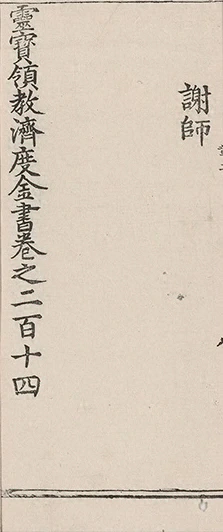 謝師
靈寶領教濟度金書卷之二百十四